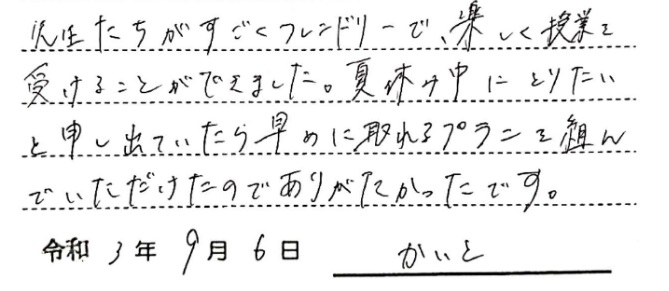 先生たちがすごくフレンドリーで、楽しく授業を
受けることができました。夏休み中にとりたい
と申し出ていたら早めに取れるプランを組ん
でいただけたのでありがたかったです。
令和3年9月6日 かいと